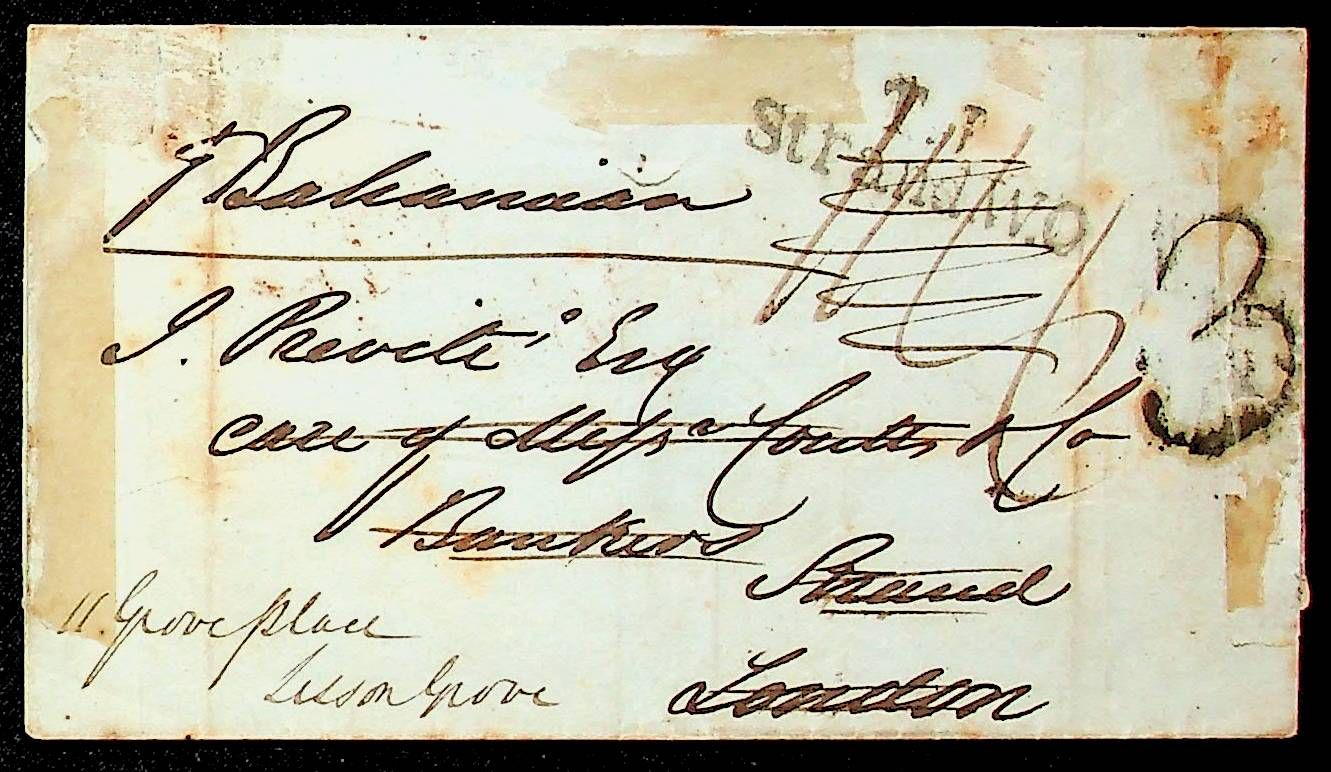 pr Bahamian
T.P
Strand W.O
3
J. Previté Esq
care of Messrs Coutts & Co
Bankers
Strand
London
11. Grove place
Lisson Grove